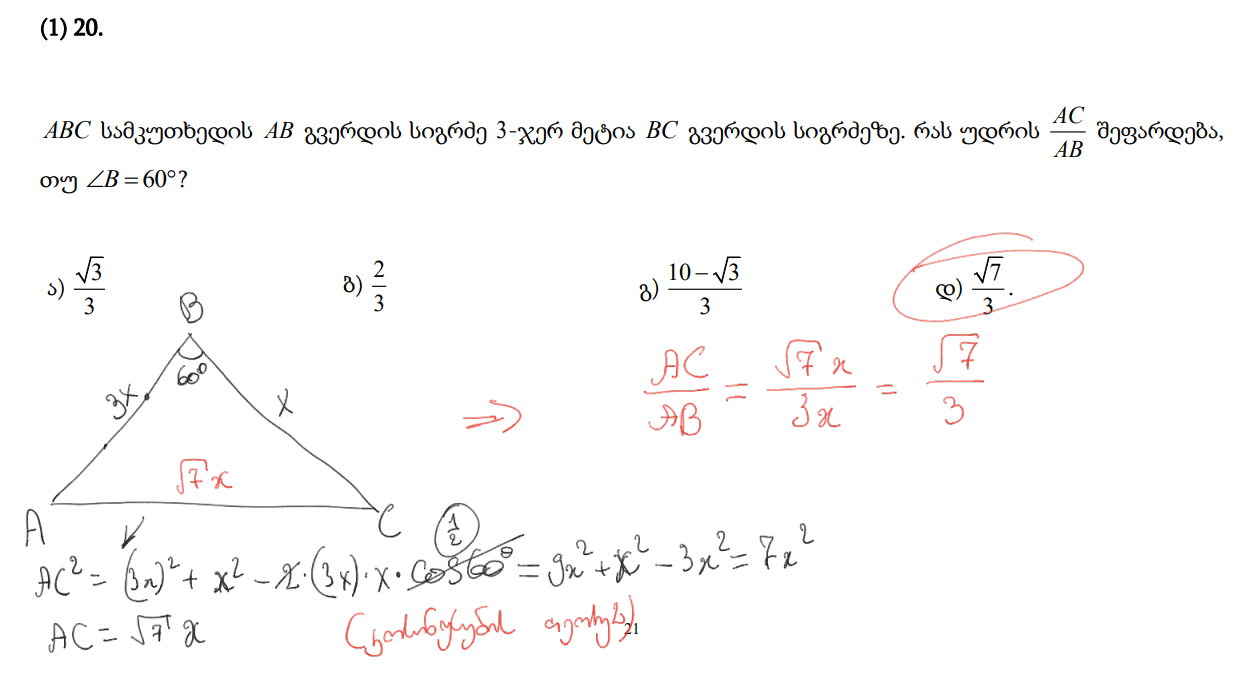 (1) 20.
ABC სამკუთხედის AB გვერდის სიგრძე 3-ჯერ მეტია BC გვერდის სიგრძეზე. რას უდრის AC/AB შეფარდება,
თუ ∠B = 60°?
ა) √3/3 ბ) 2/3 გ) (10−√3)/3 დ) √7/3.
B
60°
3x
x
√7 x
A
C
⇒ AC/AB = √7 x/3x = √7/3
1/2
AC² = (3x)² + x² − 2·(3x)·x·cos60° = 9x² + x² − 3x² = 7x²
AC = √7 x
(კოსინუსების თეორემა)
21